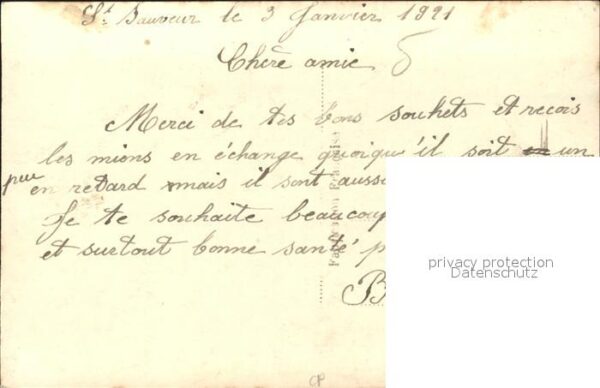 St Sauveur le 3 Janvier 1921
Chère amie
Merci de tes bons souhets et reçois
les mions en échange quoiqu'il soit un
peu en retard mais il sont aussi
Je te souhaite beaucoup
et surtout bonne santé
B
Fabrication Française
privacy protection
Datenschutz
CP